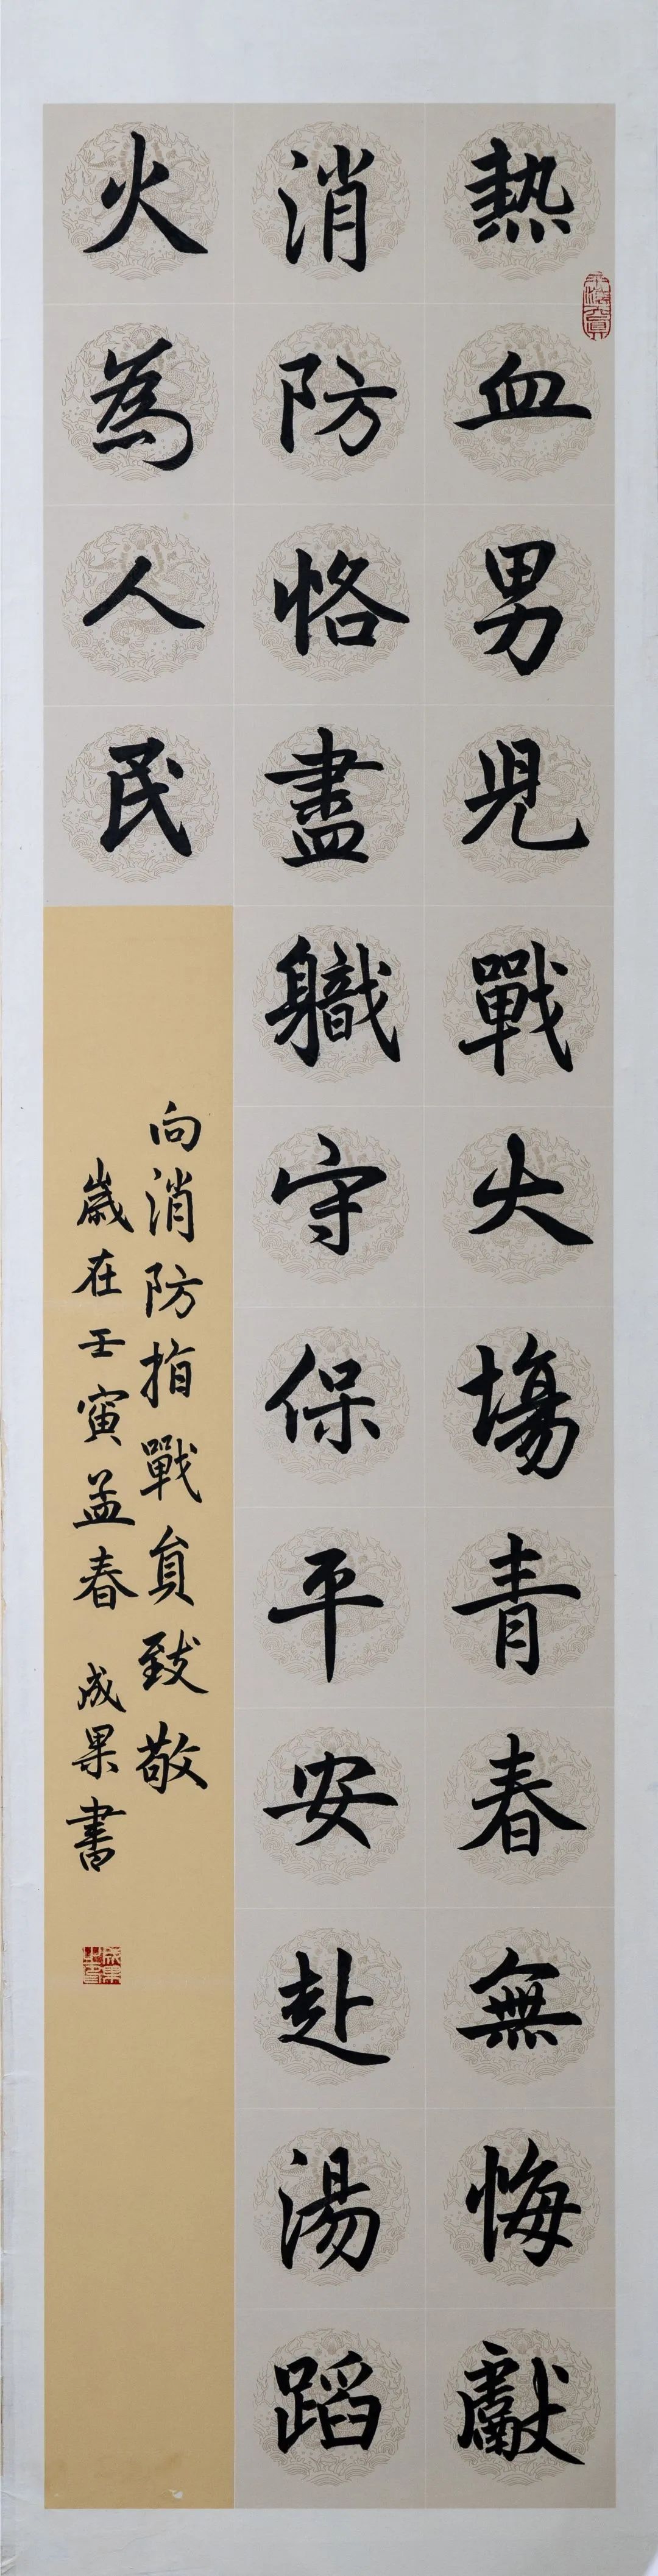 熱血男兒戰火場青春無悔獻
消防恪盡職守保平安赴湯蹈
火為人民
向消防指戰員致敬
歲在壬寅孟春 成果書